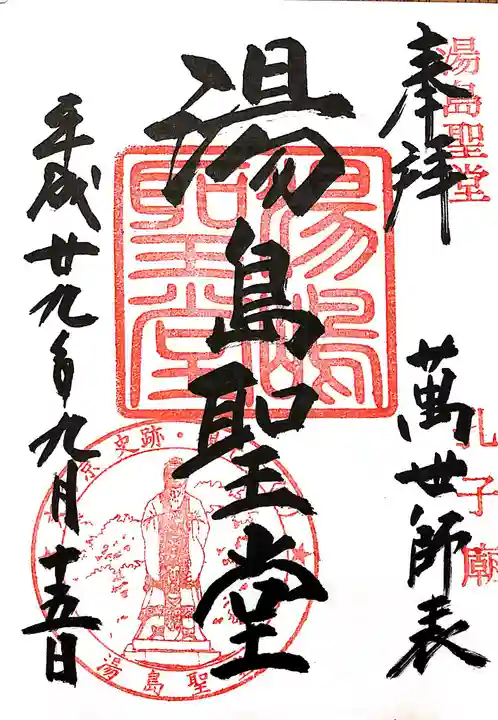 湯島聖堂
奉拝
孔子廟
萬世師表
湯島聖堂
湯島聖堂
平成廿九年九月十五日
京史跡・
湯島聖